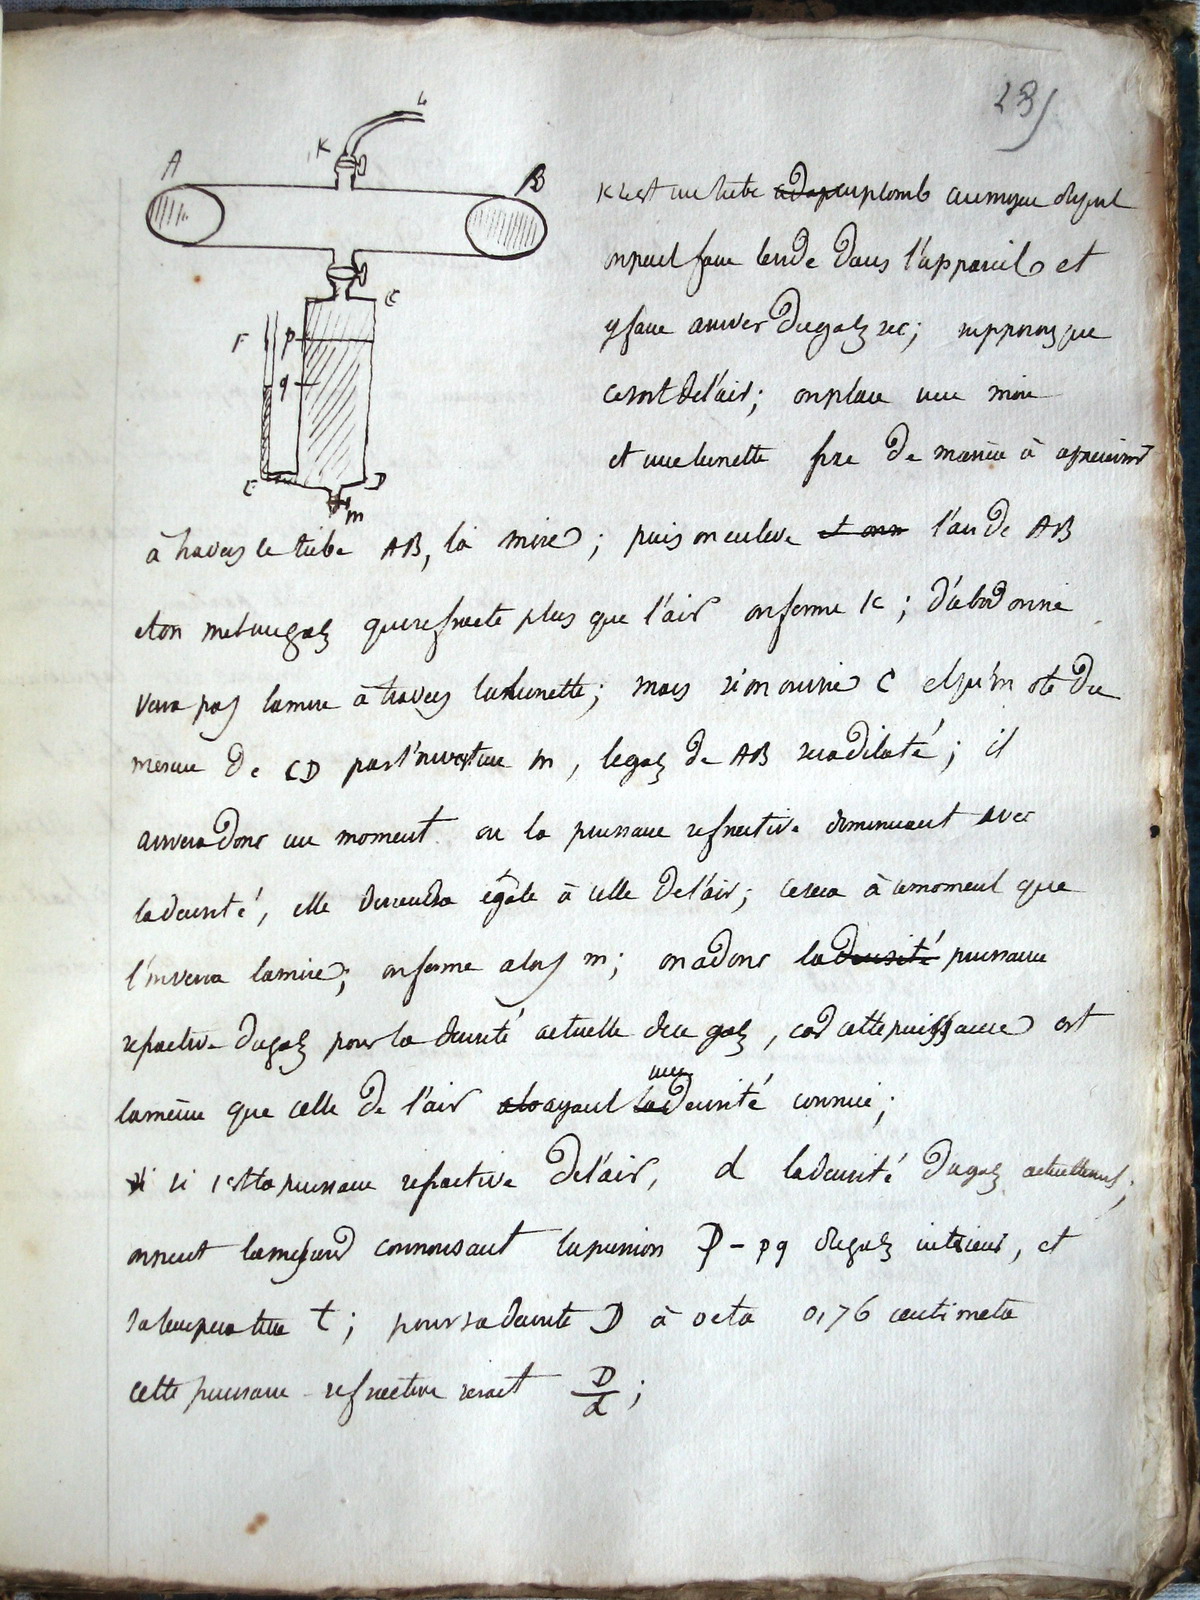 231
L
K
A
B
C
F
p
q
E
D
m
KL est un tube en plomb au moyen duquel
on peut faire le vide dans l'appareil et
y faire arriver du gaz sec; supposons que
ce soit de l'air; on place une mire
et une lunette fixe de manière à apercevoir
à travers le tube AB, la mire; puis on enleve l'air de AB
et on met un gaz qui refracte plus que l'air on ferme K; d'abord on ne
verra pas la mire à travers la lunette; mais si on ouvre C et qu'on ote du
mercure de CD par l'ouverture m, le gaz de AB sera dilaté; il
arrivera donc un moment ou la puissance refractive diminuant avec
la densité, elle deviendra égale à celle de l'air; ce sera à ce moment que
l'on verra la mire; on ferme alors m; on a donc la densité puissance
refractive du gaz pour la densité actuelle de ce gaz, car cette puissance est
la même que celle de l'air ayant la une densité connue;
si 1 est la puissance refractive de l'air, d la densité du gaz actuellement;
on peut la mesurer connoissant la pression P - pq du gaz intérieur, et
sa temperature t; pour sa densité D à 0 et a 0,76 centimetre
cette puissance refractive serait D/d;